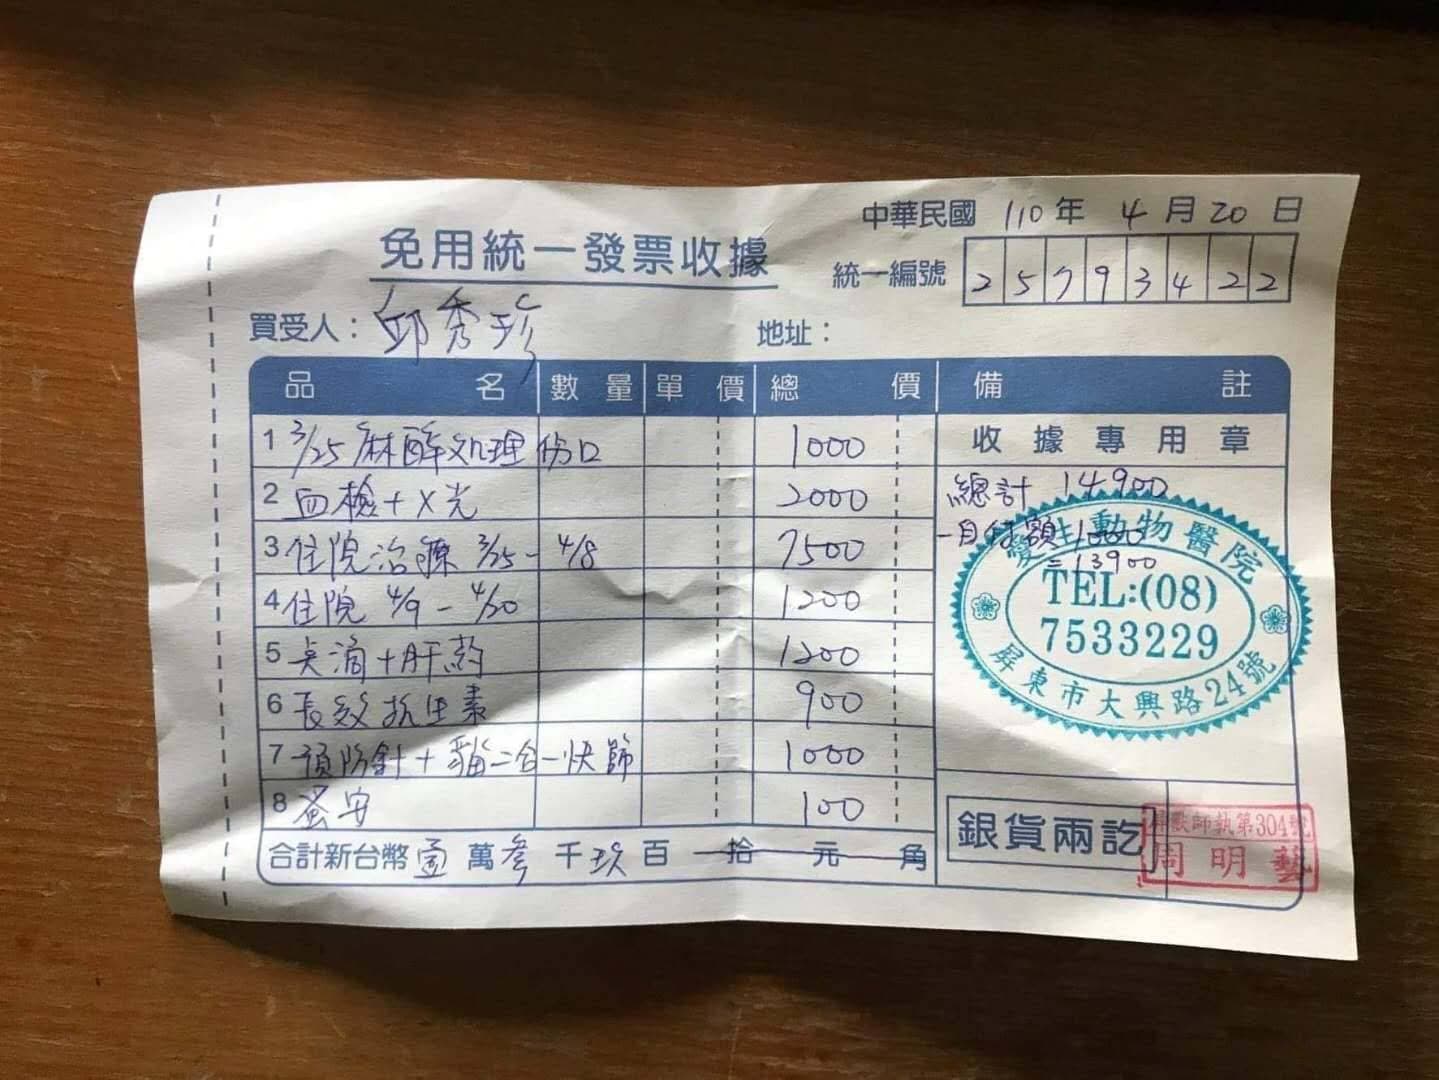 中華民國 110年 4月20日
免用統一發票收據
統一編號 25793422
買受人：邱秀珍 地址：
品名 數量 單價 總價 備註
1 3/25 麻醉処理 傷口 1000
收據專用章
2 血檢+X光 2000
總計 14900
3 住院治療 3/25 - 4/8 7500
-自付額 1000
=13900
4 住院 4/9 - 4/20 1200
5 点滴+肝药 1200
6 長效抗生素 900
7 預防針+貓二合一快篩 1000
8 蚤安 100
動物醫院
TEL:(08)
7533229
屏東市大興路24號
合計新台幣 壹萬參千玖百拾元角
銀貨兩訖
獸師執第304號
周明藝